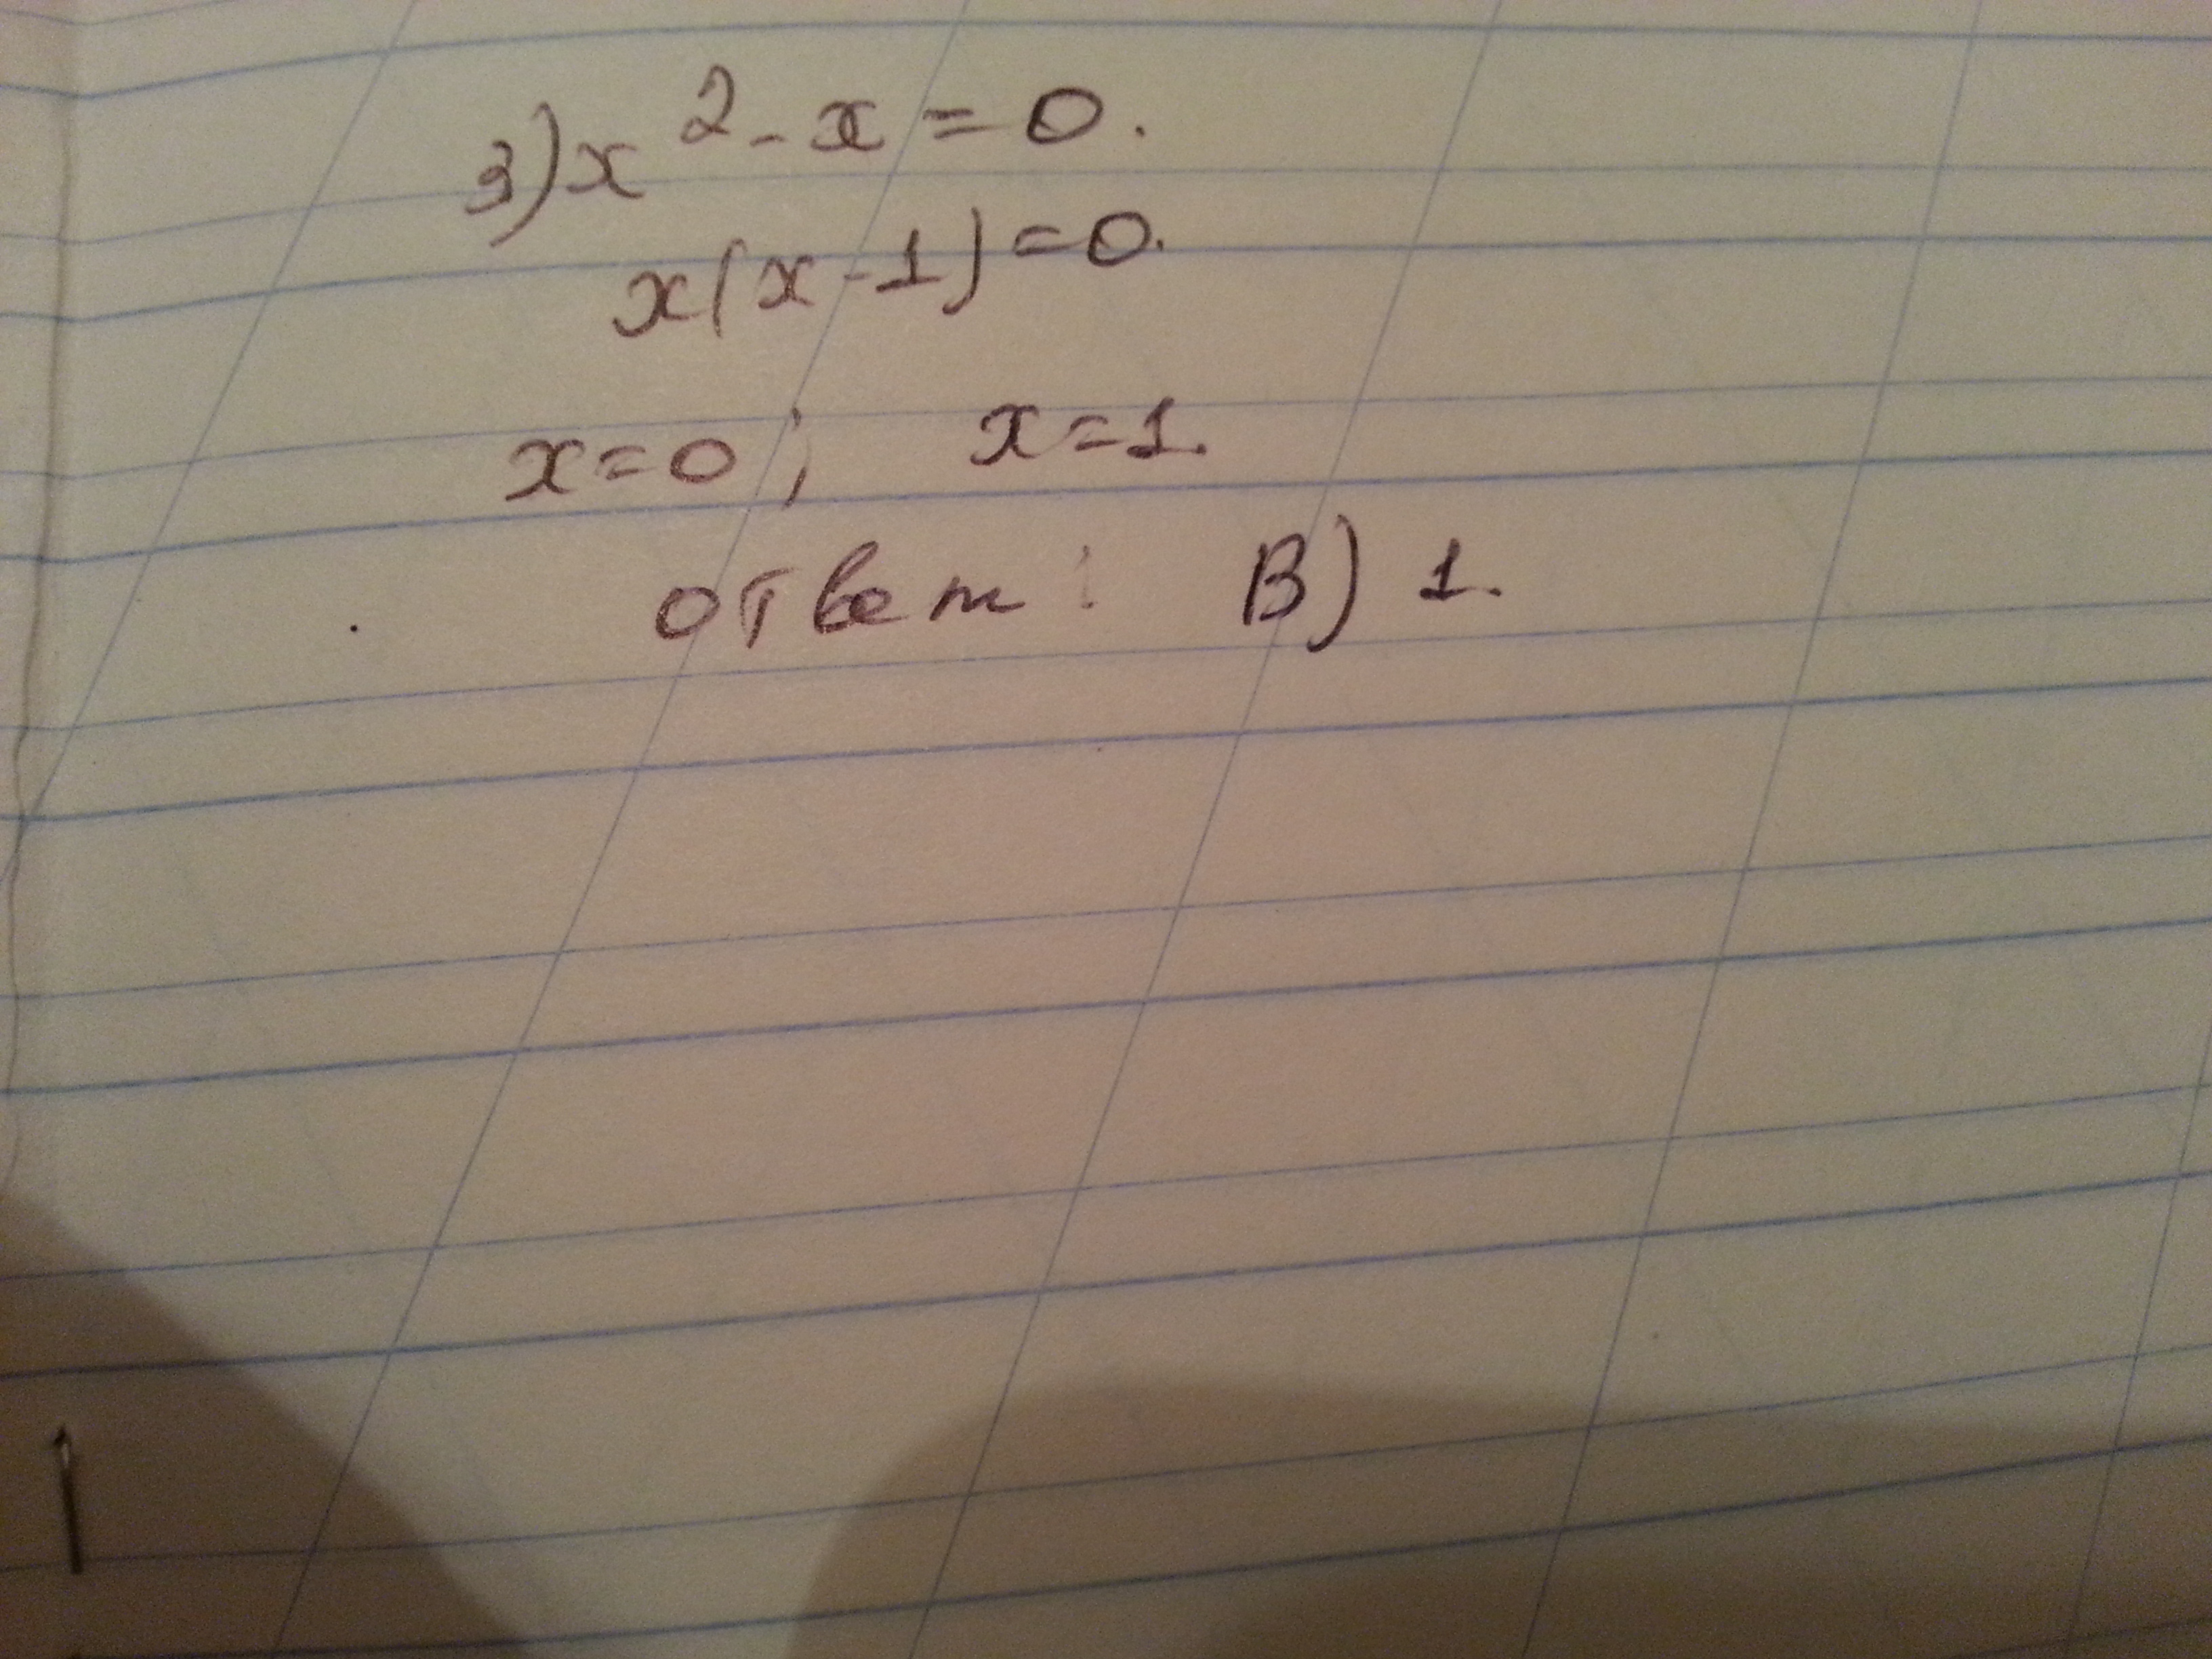 3) x² - x = 0.
x(x-1) = 0.
x=0; x=1.
ответ: В) 1.